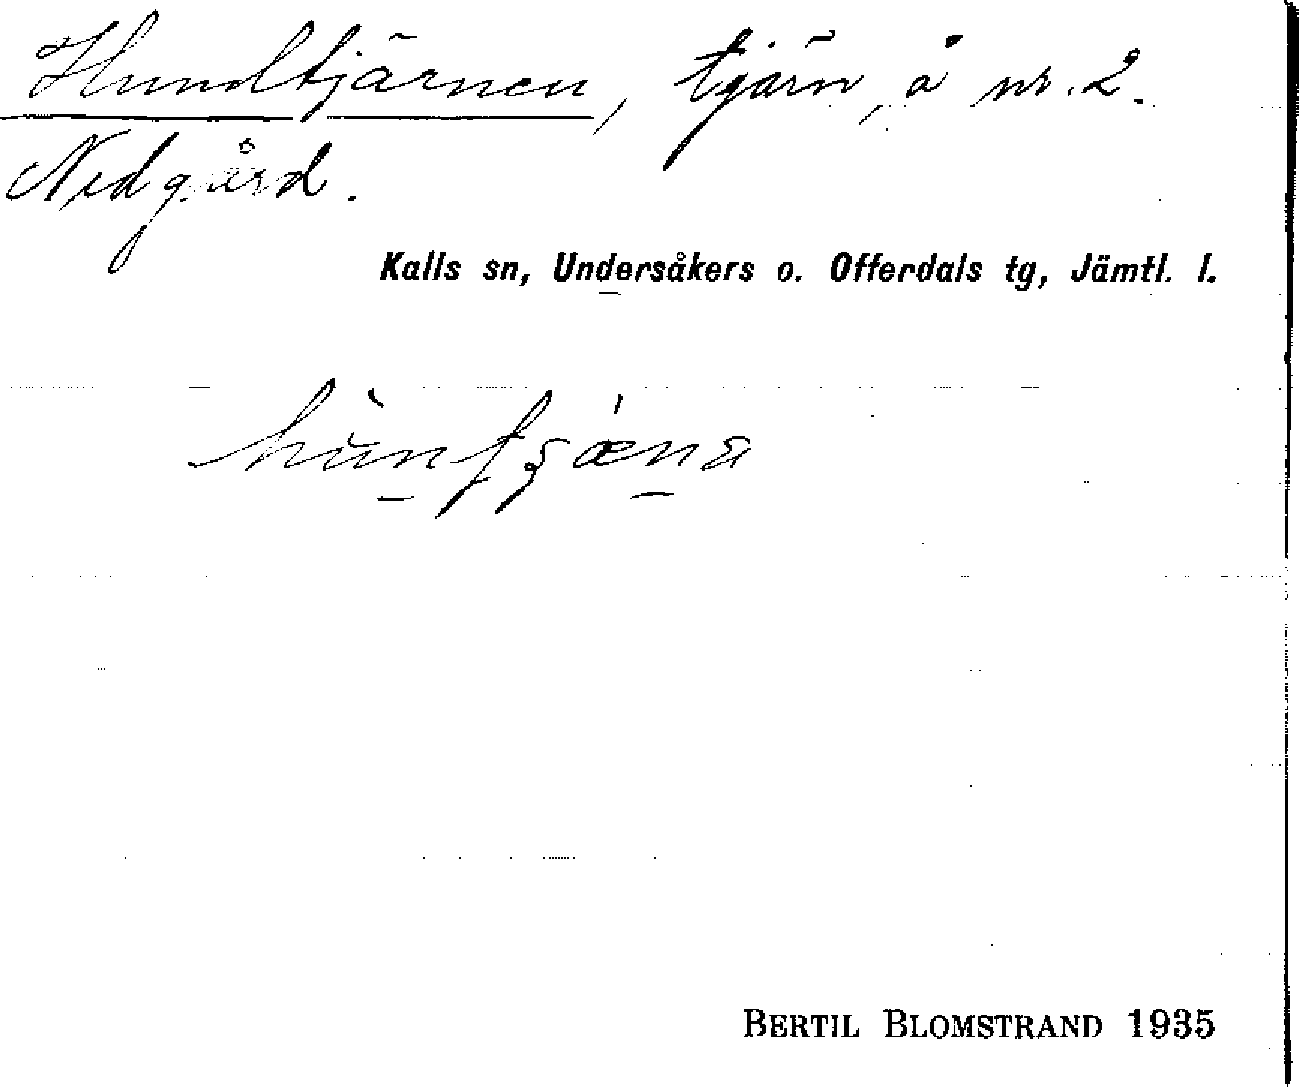 Hundtjärnen, tjärn, å nr. 2.
Nedgård.
Kalls sn, Undersåkers o. Offerdals tg, Jämtl. l.
BERTIL BLOMSTRAND 1935